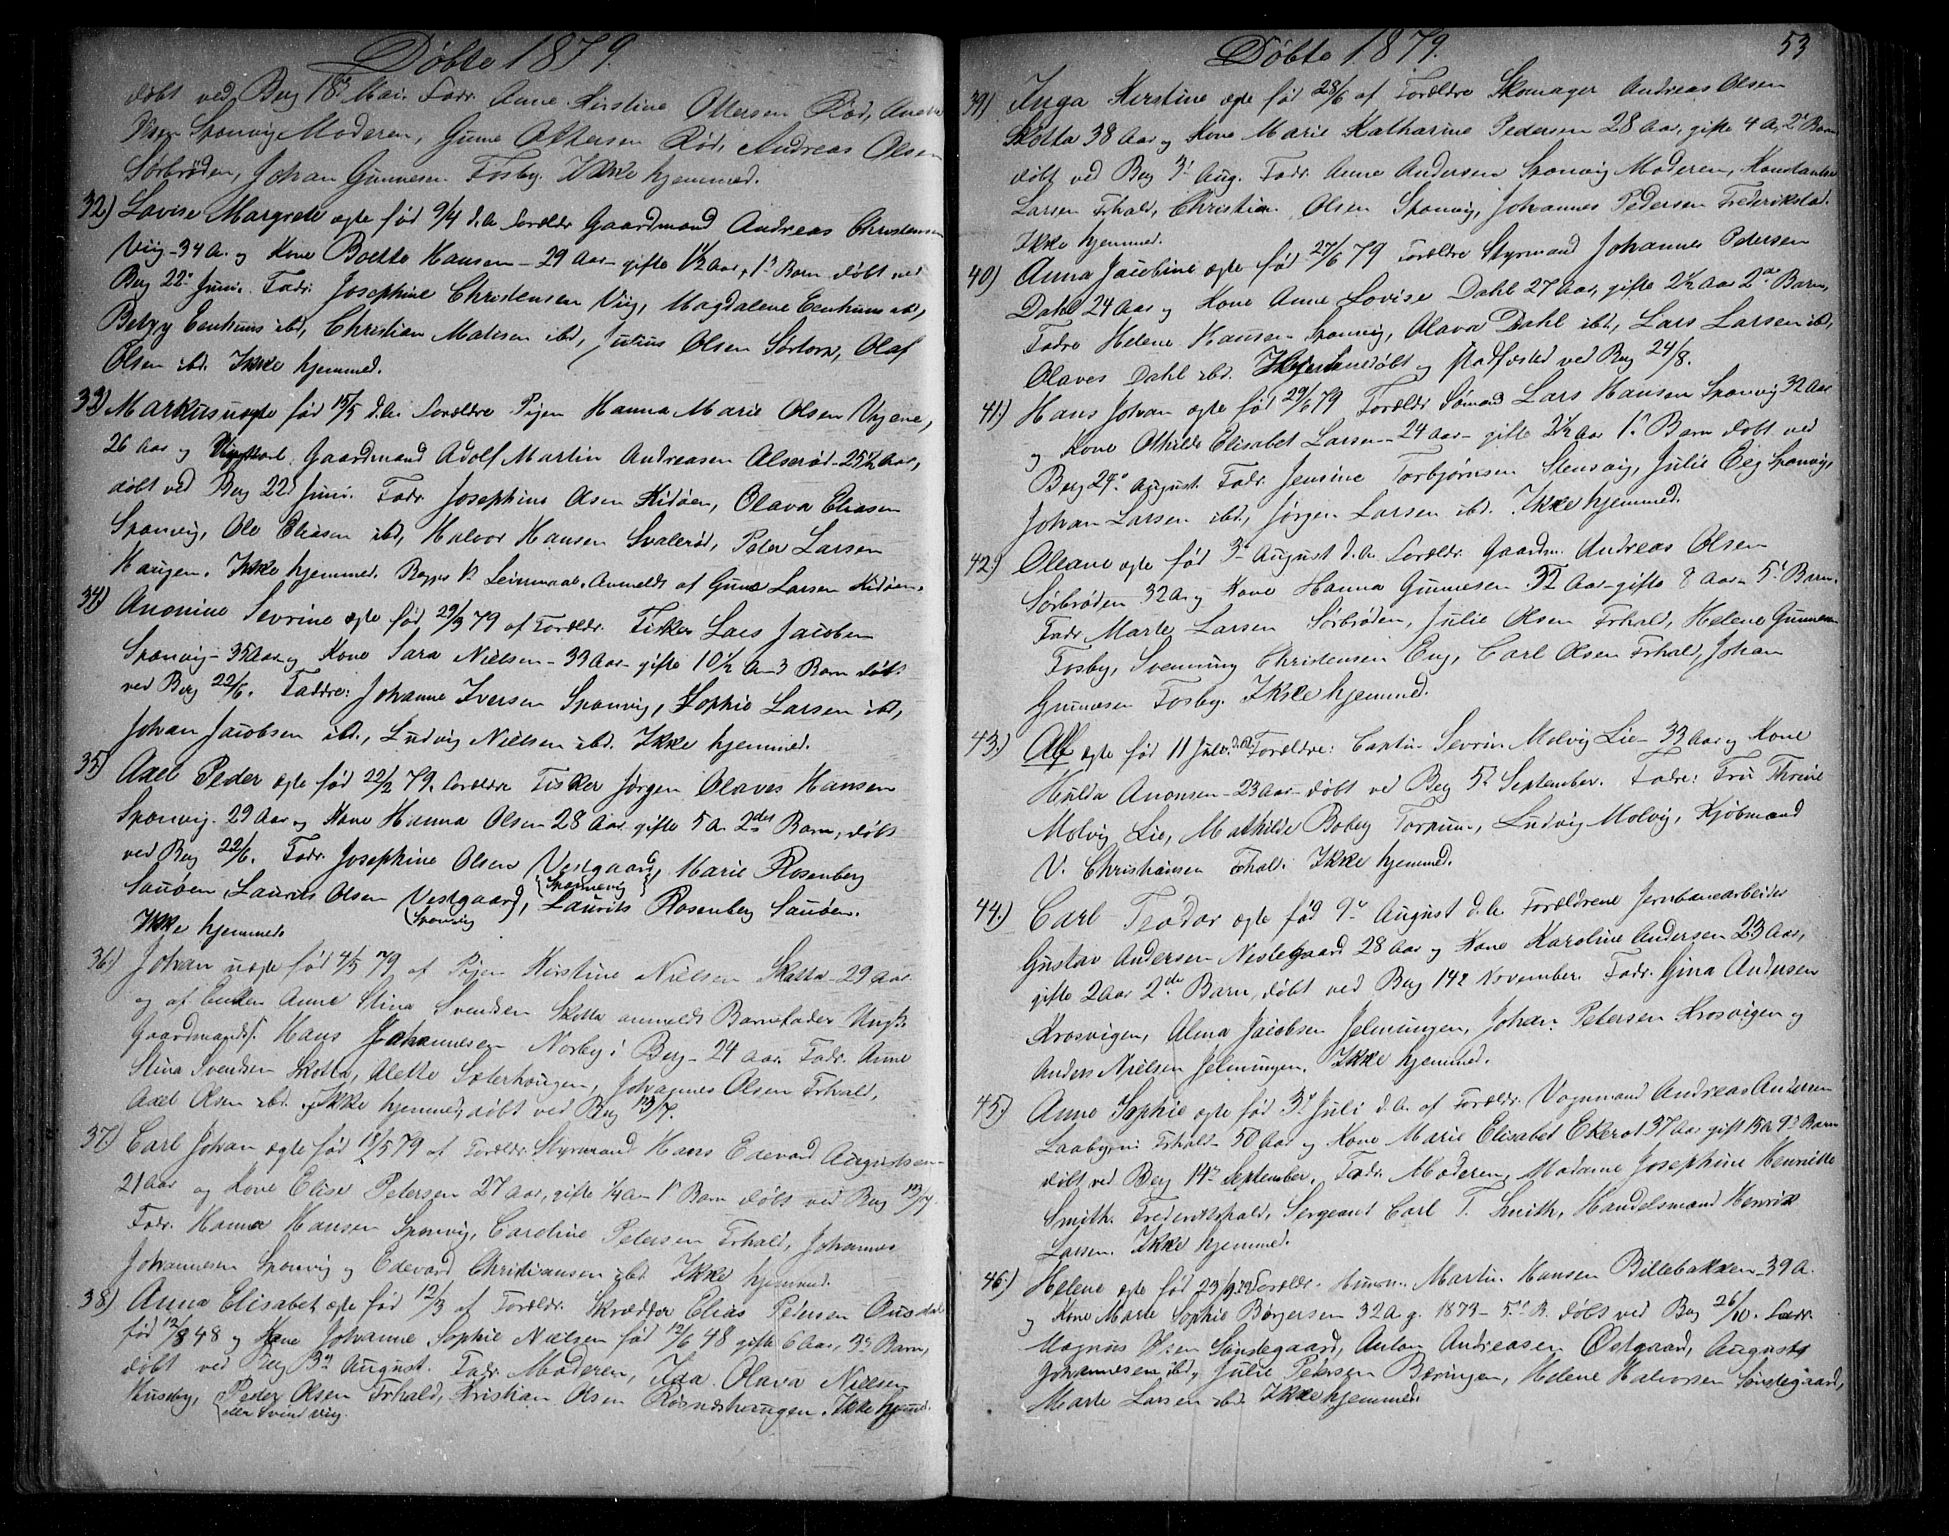 Døbte 1879.
døbt ved Berg 18de Mai. Fadr. Anne Kirstine Ottersen Rød,
Sponvig Moderen, Gunne Ottersen Rød, Andreas Olsen
Sørbrøden, Johan Gunnesen Fosby. Ikke hjemmed.
32) Lovise Margrete egte født 9/4 d.a. Foreldr Gaardmand Andreas Christensen
Viig - 34 A. og Kone Boette Hansen - 29 Aar - gifte 1½ Aar, 1' Barn døbt ved
Berg 22' Juni. Fadr. Josephine Christensen Viig, Magdalene Eenhuus ibd,
Betzy Eenhuus ibd, Christian Matisen ibd, Julius Olsen Sørtorp, Olaf
Olsen ibd. Ikke hjemmed.
33) Markus uegte før 15/5 d.a. Foreldre Pigen Hanna Marie Olsen
26 Aar og Gaardmand Adolf Martin Andreasen Alserød - 25½ Aar,
døbt ved Berg 22d Juni. Fadr. Josephine Olsen Kidøen, Olava Eliasen
Sponvig, Ole Eliasen ibd, Halvor Hansen Svalerød, Peter Larsen
Haugen. Ikke hjemmed. Begges 1' Leiermaal. Anmeldt af Gunne Larsen Kidøen.
34) Anonine Sevrine egte før 29/3 79 af Foreldr. Fisker Lars Jacobsen
Sponvig - 35 Aar og Kone Sara Nielsen - 33 Aar - gifte 10½ A - 3 Barn døbt
ved Berg 22/6. Faddre: Johanne Iversen Sponvig, Sophie Larsen ibd,
Johan Jacobsen ibd., Ludvig Nielsen ibd. Ikke hjemmed.
35) Axel Peder egte før 22/2 79. Foreldre Fisker Jørgen Olaves Hansen
Sponvig. 29 Aar og Kone Hanna Olsen 28 Aar gifte 5 A. 2det Barn, døbt
ved Berg 22/6. Fadr. Josephine Olsen Vestgaard, Marie Rosenberg
(Sponvig)
Sauøen, Laurits Olsen Vestgaard, Laurits Rosenberg Sauøen.
(Sponvig)
Ikke hjemmed.
36) Johan uegte før 4/5 79 af Pigen Kirstine Nielsen Skotta - 29 Aar
og af Enken Anne Stina Svendsen Skotta anmeldt Barnefader Ungk.
Gaardmands. Hans Johannesen Norby i Berg - 24 Aar. Fadr. Anne
Stina Svendsen Skotta, Alette Sæterhougen, Johannes Olsen Frhald,
Axel Olsen ibd. Ikke hjemmed, døbt ved Berg 13/7.
37) Carl Johan egte før 18/5 79 af Foreldr. Styrmand Hans Edevard Augustsen
21 Aar og Kone Elise Petersen 27 Aar, gifte ¼ A - 1' Barn døbt ved Berg 13/7.
Fadr. Hanna Hansen Sponvig, Caroline Petersen Frhald, Johannes
Johannesen Sponvig og Edevard Christiansen ibd. Ikke hjemmed.
38) Anna Elisabet egte før 12/3 af Foreldr. Skrædder Elias Pedersen
født 12/3 48 og Kone Johanne Sophie Nielsen før 12/6 48 gifte 6 Aar, 3' Barn,
døbt ved Berg 3' August. Fadr. Moderen, Ida Olava Nielsen
Huseby, Peder Olsen Frhald, Kristian Olsen Røsneskougen. Ikke hjemd.
(eller Svindvig)
53
Døbte 1879.
39) Inga Kirstine egte før 28/6 af Foreldre Skomager Andreas Olsen
Skotta 38 Aar og Kone Marie Katharine Pedersen 28 Aar, gifte 4 A, 2' Barn
døbt ved Berg 3' Aug. Fadr. Anne Andersen Sponvig Moderen, Konstantin
Larsen Frhald, Christian Olsen Sponvig, Johannes Pedersen Frederikstad.
Ikke hjemmed.
40) Anna Jacobine egte før 27/6 79 Foreldre Styrmand Johannes Petersen
Dahl 24 Aar og Kone Anne Lovise Dahl 27 Aar, gifte 2½ Aar 2de Barn,
Fadre Helene Hansen Sponvig, Olava Dahl ibd, Lars Larsen ibd,
Olaves Dahl ibd. Hjemmedøbt og stadfæsted ved Berg 24/8.
41.) Hans Johan egte før 29/6 79 Foreldr Sømand Lars Hansen Sponvig 32 Aar
og Kone Othilde Elisabet Larsen - 24 Aar - gifte 2½ Aar 1' Barn døbt ved
Berg 24' August. Fadr. Jensine Torbjørnsen Stensvig, Julie Eeg Sponvig,
Johan Larsen ibd, Jørgen Larsen ibd. Ikke hjemmed.
42.) Oleane egte før 3' August d.a. Foreldr. Gaardm. Andreas Olsen
Sørbrøden 32 A og Kone Hanna Gunnesen 32 Aar - gifte 8 Aar - 5' Barn.
Fadr Marte Larsen Sørbrøden, Julie Olsen Frhald, Helene Gunnesen
Fosby, Svenning Christensen Eng, Carl Olsen Frhald, Johan
Gunnesen Fosby. Ikke hjemmed.
43.) Alf egte før 11 Juli d.a. Foreldre: Captn Sevrin Molvig Lie - 33 Aar og Kone
Hulda Anonsen - 23 Aar - døbt ved Berg 5' September. Fadre: Fru Thrine
Molvig Lie, Mathilde Boberg Torpum, Ludvig Molvig, Kjøbmand
V. Christiansen Frhald. Ikke hjemmed.
44.) Carl Teodor egte før 9' August d.a. Foreldrene Jernbanearbeider
Gustav Andersen Nestegaard 28 Aar og Kone Karoline Andersen 23 Aar,
gifte 2 Aar 2de Barn, døbt ved Berg 14' November. Fadr. Gina Andersen
Krosvigen, Alma Jacobsen Jelmungen, Johan Petersen Krosvigen og
Anders Nielsen Jelmungen. Ikke hjemmed.
45.) Anne Sophie egte før 3' Juli d.a. af Foreldr. Vognmand Andreas Andersen
Laaby, ni Frhald - 50 Aar og Kone Marie Elisabet Ekerot 37 Aar gift 15 A 9' Barn
døbt ved Berg 14' September. Fadr. Moderen, Madame Josephine Henriette
Smith Frederikshald, Sergeant Carl T. Smith, Handelsmand Henrik
Larsen. Ikke hjemmed.
46.) Helene egte før 23/9 Foreldr. Husm. Martin Hansen Billebakken - 39 A.
og Kone Marte Sophie Børgersen 32 A g. 1873 - 5' B. døbt ved Berg 26/10. Fadr.
Magnus Olsen Sønstegaard, Anton Andreasen Østgaard, August
Johannesen ibd, Julie Petersen Børingen, Helene Halvorsen Sønstegaard,
Marte Larsen ibd. Ikke hjemmed.